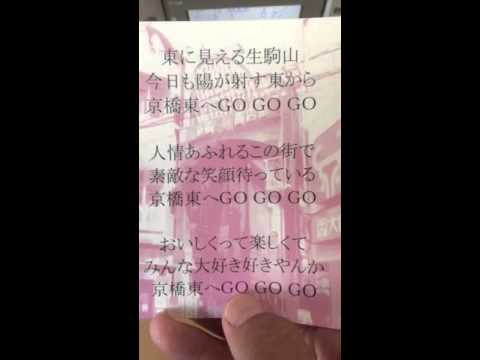 東に見える生駒山
今日も陽が射す東から
京橋東へGO GO GO
人情あふれるこの街で
素敵な笑顔待っている
京橋東へGO GO GO
おいしくって楽しくて
みんな大好き好きやんか
京橋東へGO GO GO